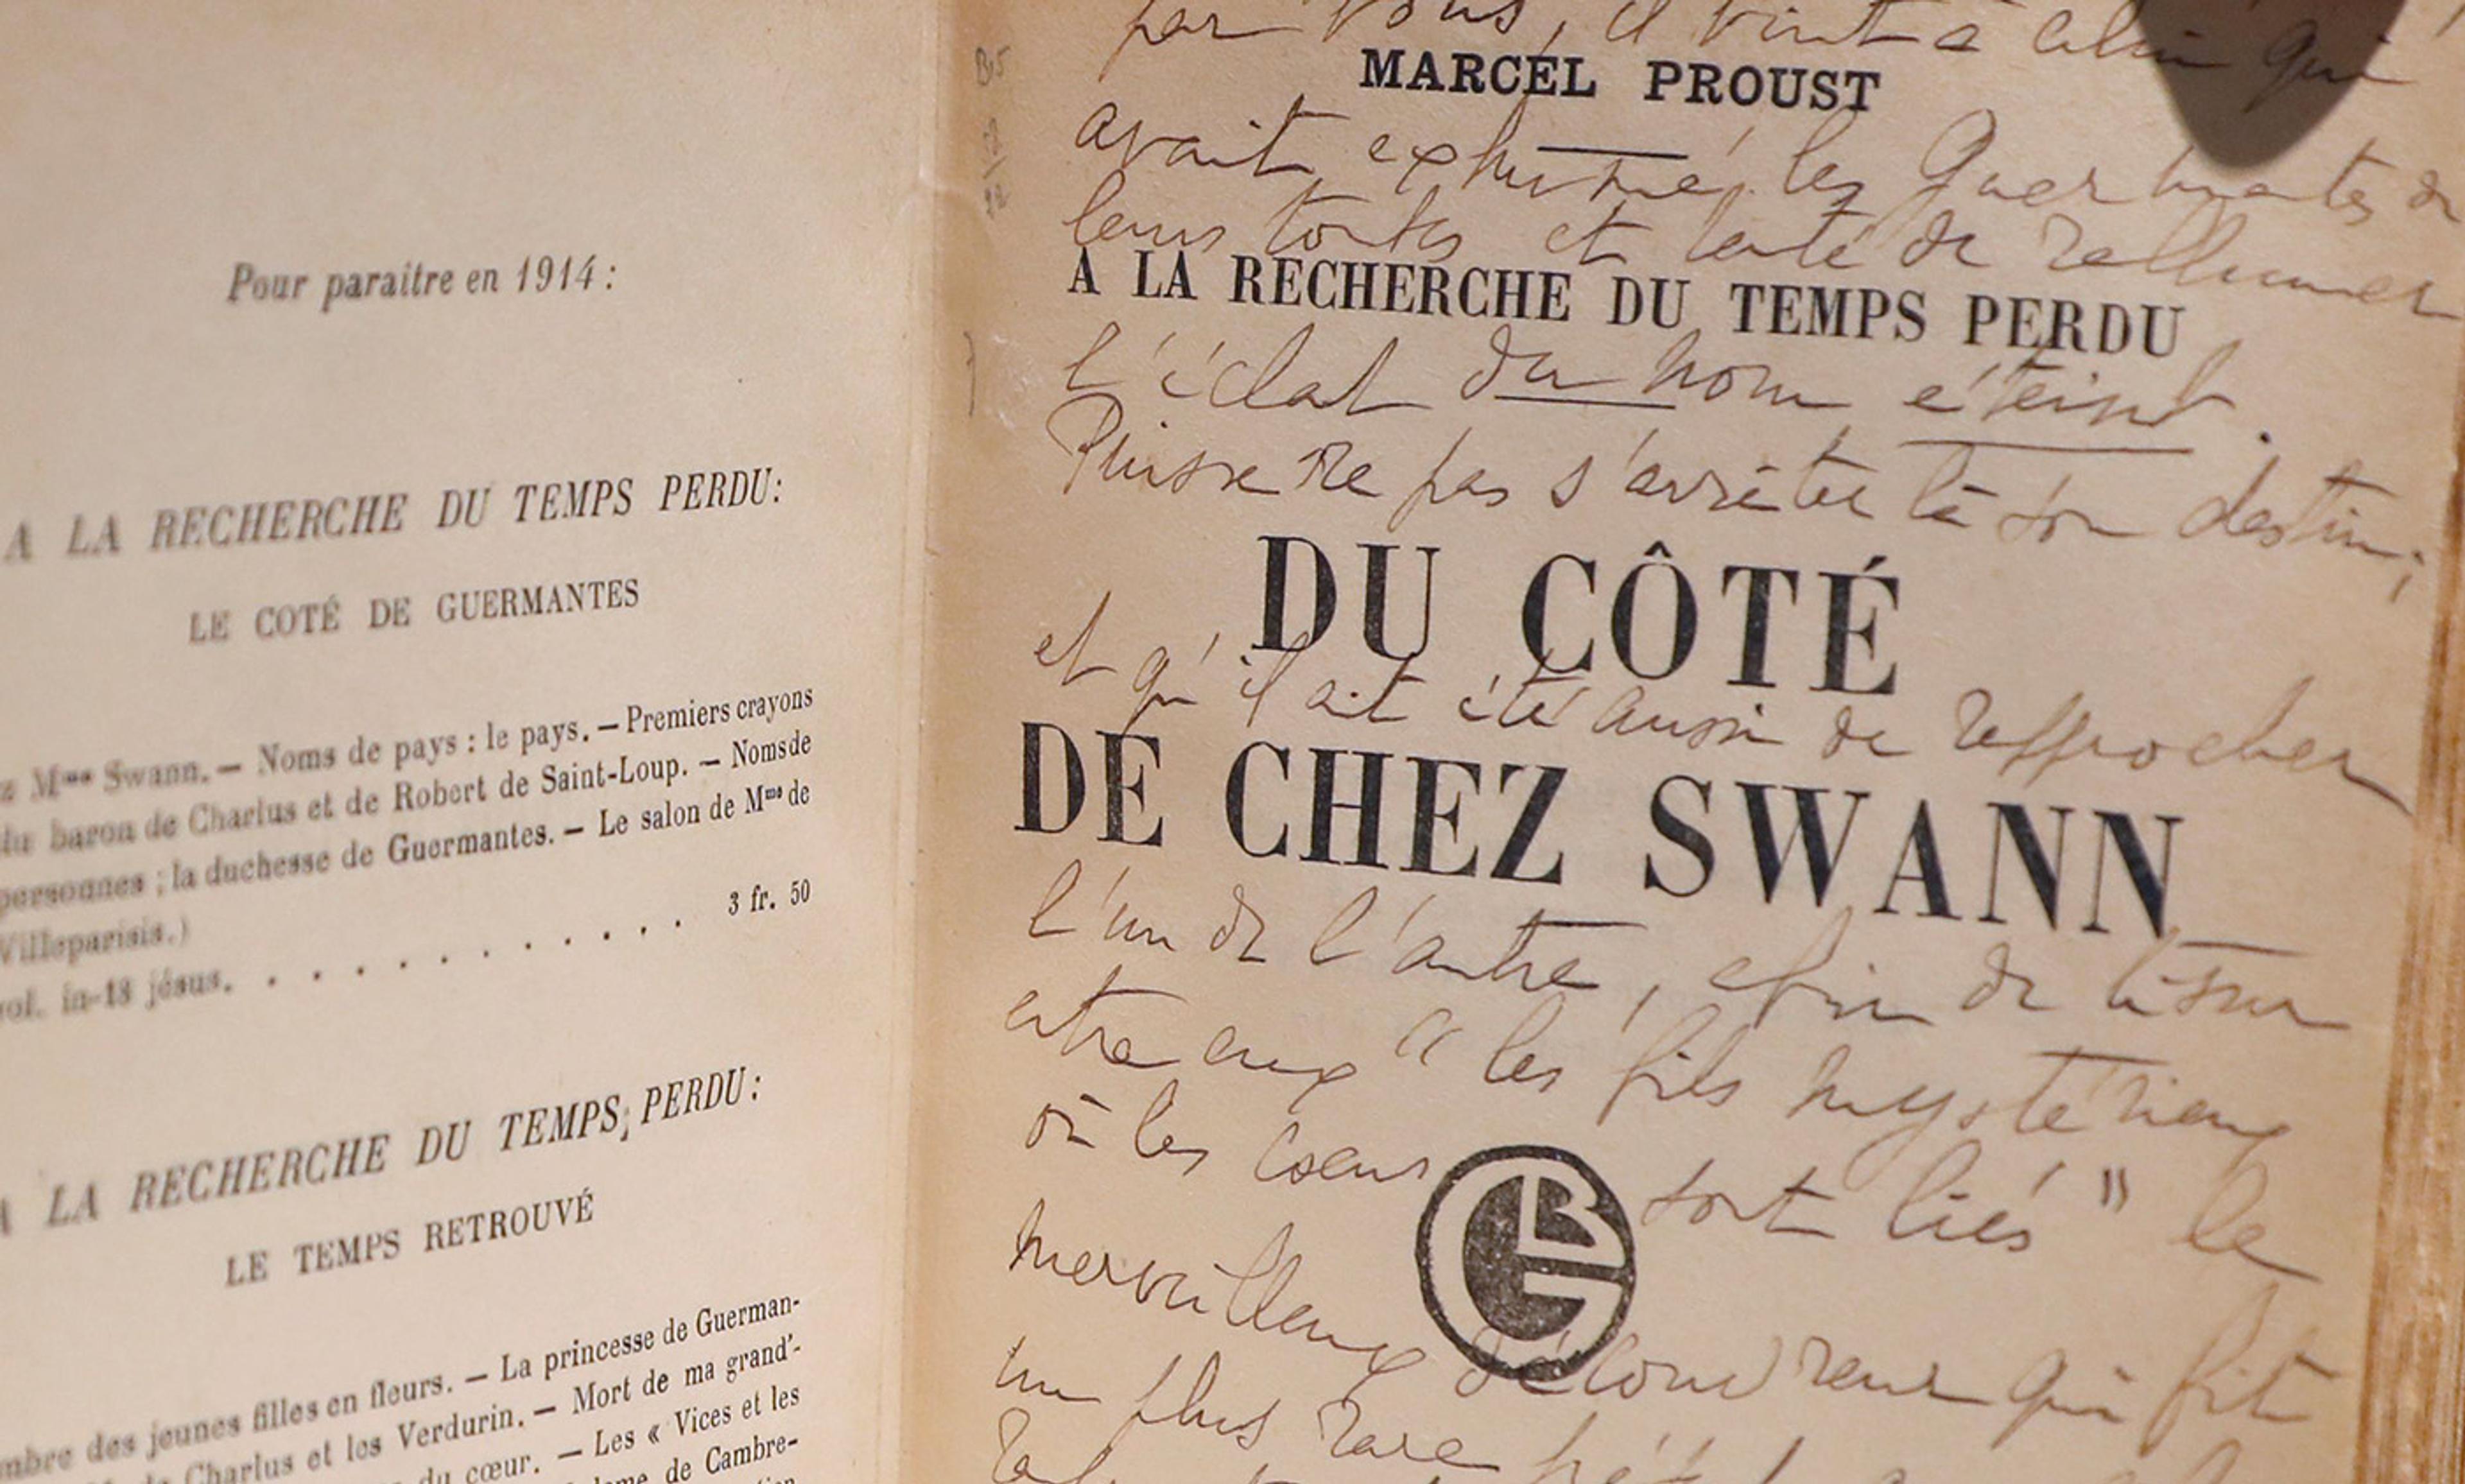 Pour paraitre en 1914 :
A LA RECHERCHE DU TEMPS PERDU:
LE COTÉ DE GUERMANTES
z Mme Swann. — Noms de pays : le pays. — Premiers crayons
du baron de Charlus et de Robert de Saint-Loup. — Noms de
personnes ; la duchesse de Guermantes. — Le salon de Mme de
Villeparisis.)
vol. in-18 jésus. . . . . . . . . . . . 3 fr. 50
A LA RECHERCHE DU TEMPS PERDU :
LE TEMPS RETROUVÉ
mbre des jeunes filles en fleurs. — La princesse de Guerman-
de Charlus et les Verdurin. — Mort de ma grand'-
du cœur. — Les « Vices et les
de Cambre-
par vous, il vint à celui qui
MARCEL PROUST
avait exhumé les Guermantes de
leurs tombes et tenté de rallumer
A LA RECHERCHE DU TEMPS PERDU
l'éclat du nom éteint.
Puisse ne pas s'arrêter là son destin ;
DU CÔTÉ
et qu'il ait été aussi de rapprocher
DE CHEZ SWANN
l'un de l'autre, afin de tisser
entre eux "les fils mystérieux
où les cœurs sont liés" le
GB
merveilleux découvreur qui fit
un plus rare